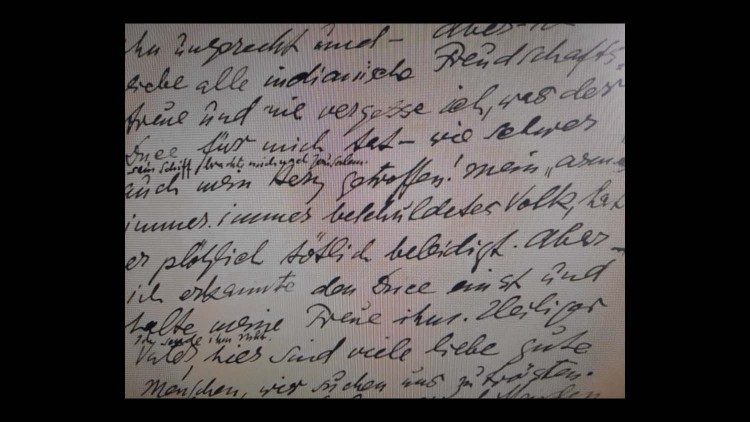 ungerecht und – Aber
liebe alle indianische Freudschafts-
treue und nie vergesse ich, was der
Duce für mich tat – wie schwer
sein Schiff brachte mich nach Jerusalem.
auch mein Herz getroffen! Mein „armes
immer. immer beschuldetes Volk, hat
er plötzlich tötlich beleidigt. Aber –
ich erkannte den Duce einst und
halte meine Treue ihm. Heiliger
Vater, hier sind viele liebe gute
Menschen, wir suchen uns zu trösten.